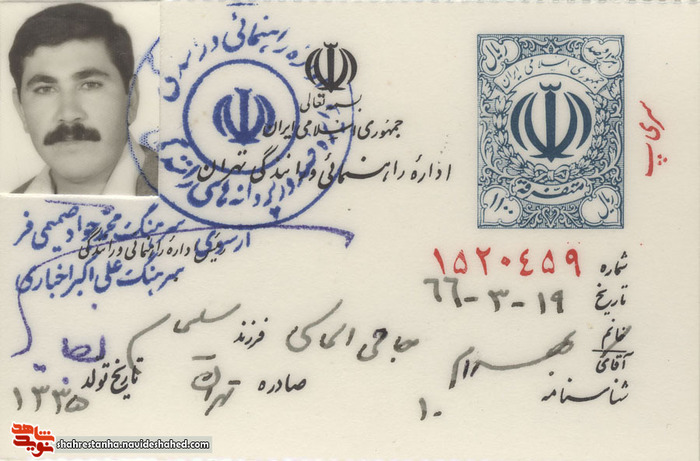 بسمه تعالی
جمهوری اسلامی ایران
اداره راهنمائی و رانندگی تهران
جمهوری اسلامی ایران
ریال
متفرقه
۱۱۰۰
ریال
سری پ
شماره ۱۵۲۰۴۵۹
تاریخ ۱۹-۳-۶۶
خانم
آقای بهرام حاجی الماسی فرزند سلیمی
شناسنامه ۱۰ صادره تهران تاریخ تولد ۱۳۳۵
سرهنگ محمد جواد صمیمی فر
رئیس اداره راهنمائی و رانندگی
از سوی
سرهنگ علی اکبر اخباری
نوید شاهد
shahrestanha.navideshahed.com